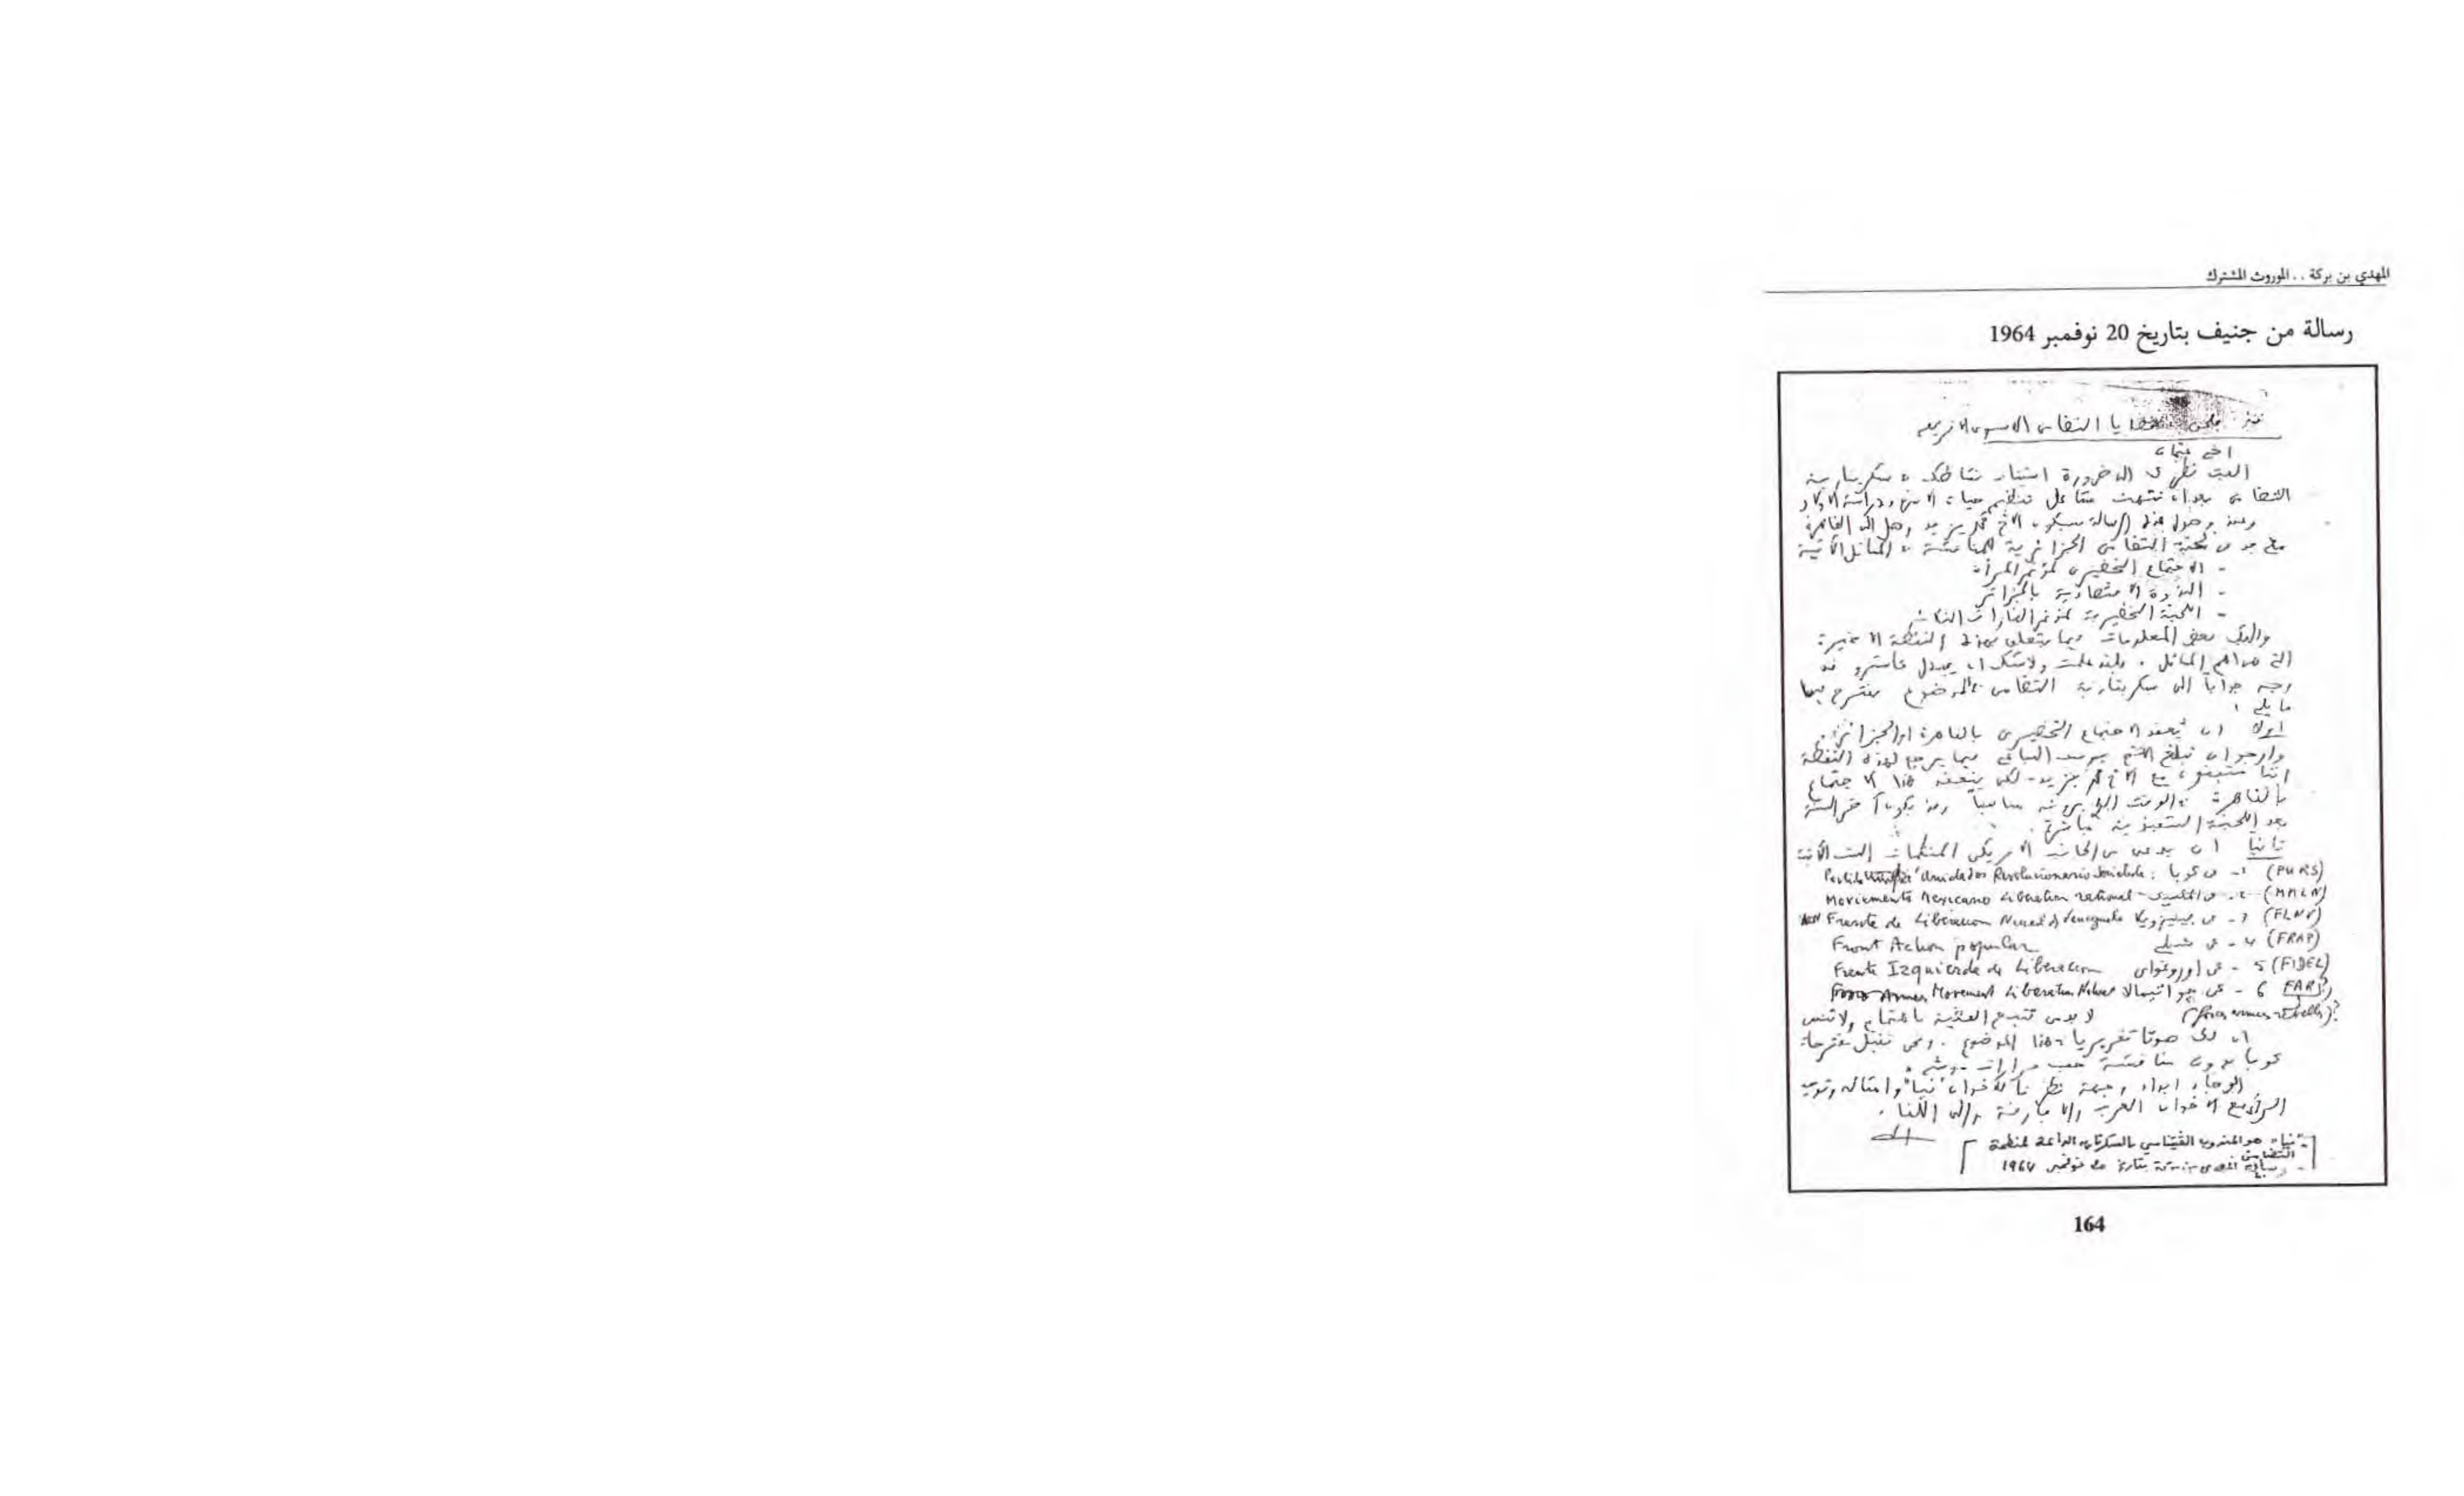 المهدي بن بركة . . الموروث المشترك
رسالة من جنيف بتاريخ 20 نوفمبر 1964
قضايا التضامن الاسيوى الافريقى
اخى عثمان
الفت نظرك الى ضرورة استيناف نشاطك فى سكريتارية
التضامن بعد ان انتهت مشاغل تنظيم حياة الاسرة ودراسة الاولاد
وعند وصول هذه الرسالة سيكون الاخ محمد يزيد وصل الى القاهرة
لجنة التضامن الجزائرية لمناقشة المسائل الآتية
- الاجتماع التحضيرى لمؤتمر المرأة
- الندوة الاقتصادية بالجزائر
- اللجنة التحضيرية لمؤتمر القارات الثلاث
واليك بعض المعلومات فيما يتعلق بهذه النقطة الاخيرة
التى هى اهم المسائل . ولقد علمت ولاشك ان فيدل كاسترو قد
وجه جواباً الى سكريتارية التضامن فى الموضوع يقترح فيها
ما يلى :
اولا ان يعقد الاجتماع التحضيرى بالقاهرة او الجزائر.
وارجو ان تبلغ يوسف السباعى فيما يرجع لهذه النقطة
اننا متفقون مع الاخ محمد يزيد - لكى ينعقد هذا الاجتماع
بالقاهرة فى الوقت الذى يرونه مناسباً وقد يكون آخر السنة
بعد اللجنة التنفيذية مباشرة.
ثانيا ان يدعى من الجانب الامريكى المنظمات الست الآتية
(PURS) 1- من كوبا : Partido Unidados Revolucionario Socialista
(MMLN) 2- من المكسيك - Moviemento Mexicano Liberation national
(FLNV) 3- من فينيزويلا Frente de Liberacion Nacal de Venezuela
(FRAP) 4- من شيلى Front Action popular
(FIDEL) 5- من اوروغواى Frente Izquierda de Liberacion
(FAR?) 6- من جواتيمالا Movement Liberation
(forces armees rebelles)? لابد من تتبع القضية باهتمام ولا تنس
ان لك صوتا تقريريا فى هذا الموضوع . ونحن نقبل مقترحات
كوبا بدون مناقشة
الرجاء ابداء وجهة نظرنا للاخوان "نيا" وامثاله وتوحيد
الرأى مع الاخوان العرب والافارقة والى اللقاء .
- "نيا" هو المندوب الفيتنامي بالسكرتارية الدائمة لمنظمة
التضامن
- رسالة المهدى بن بركة بتاريخ ٢٠ نوفمبر ١٩٦٤
164